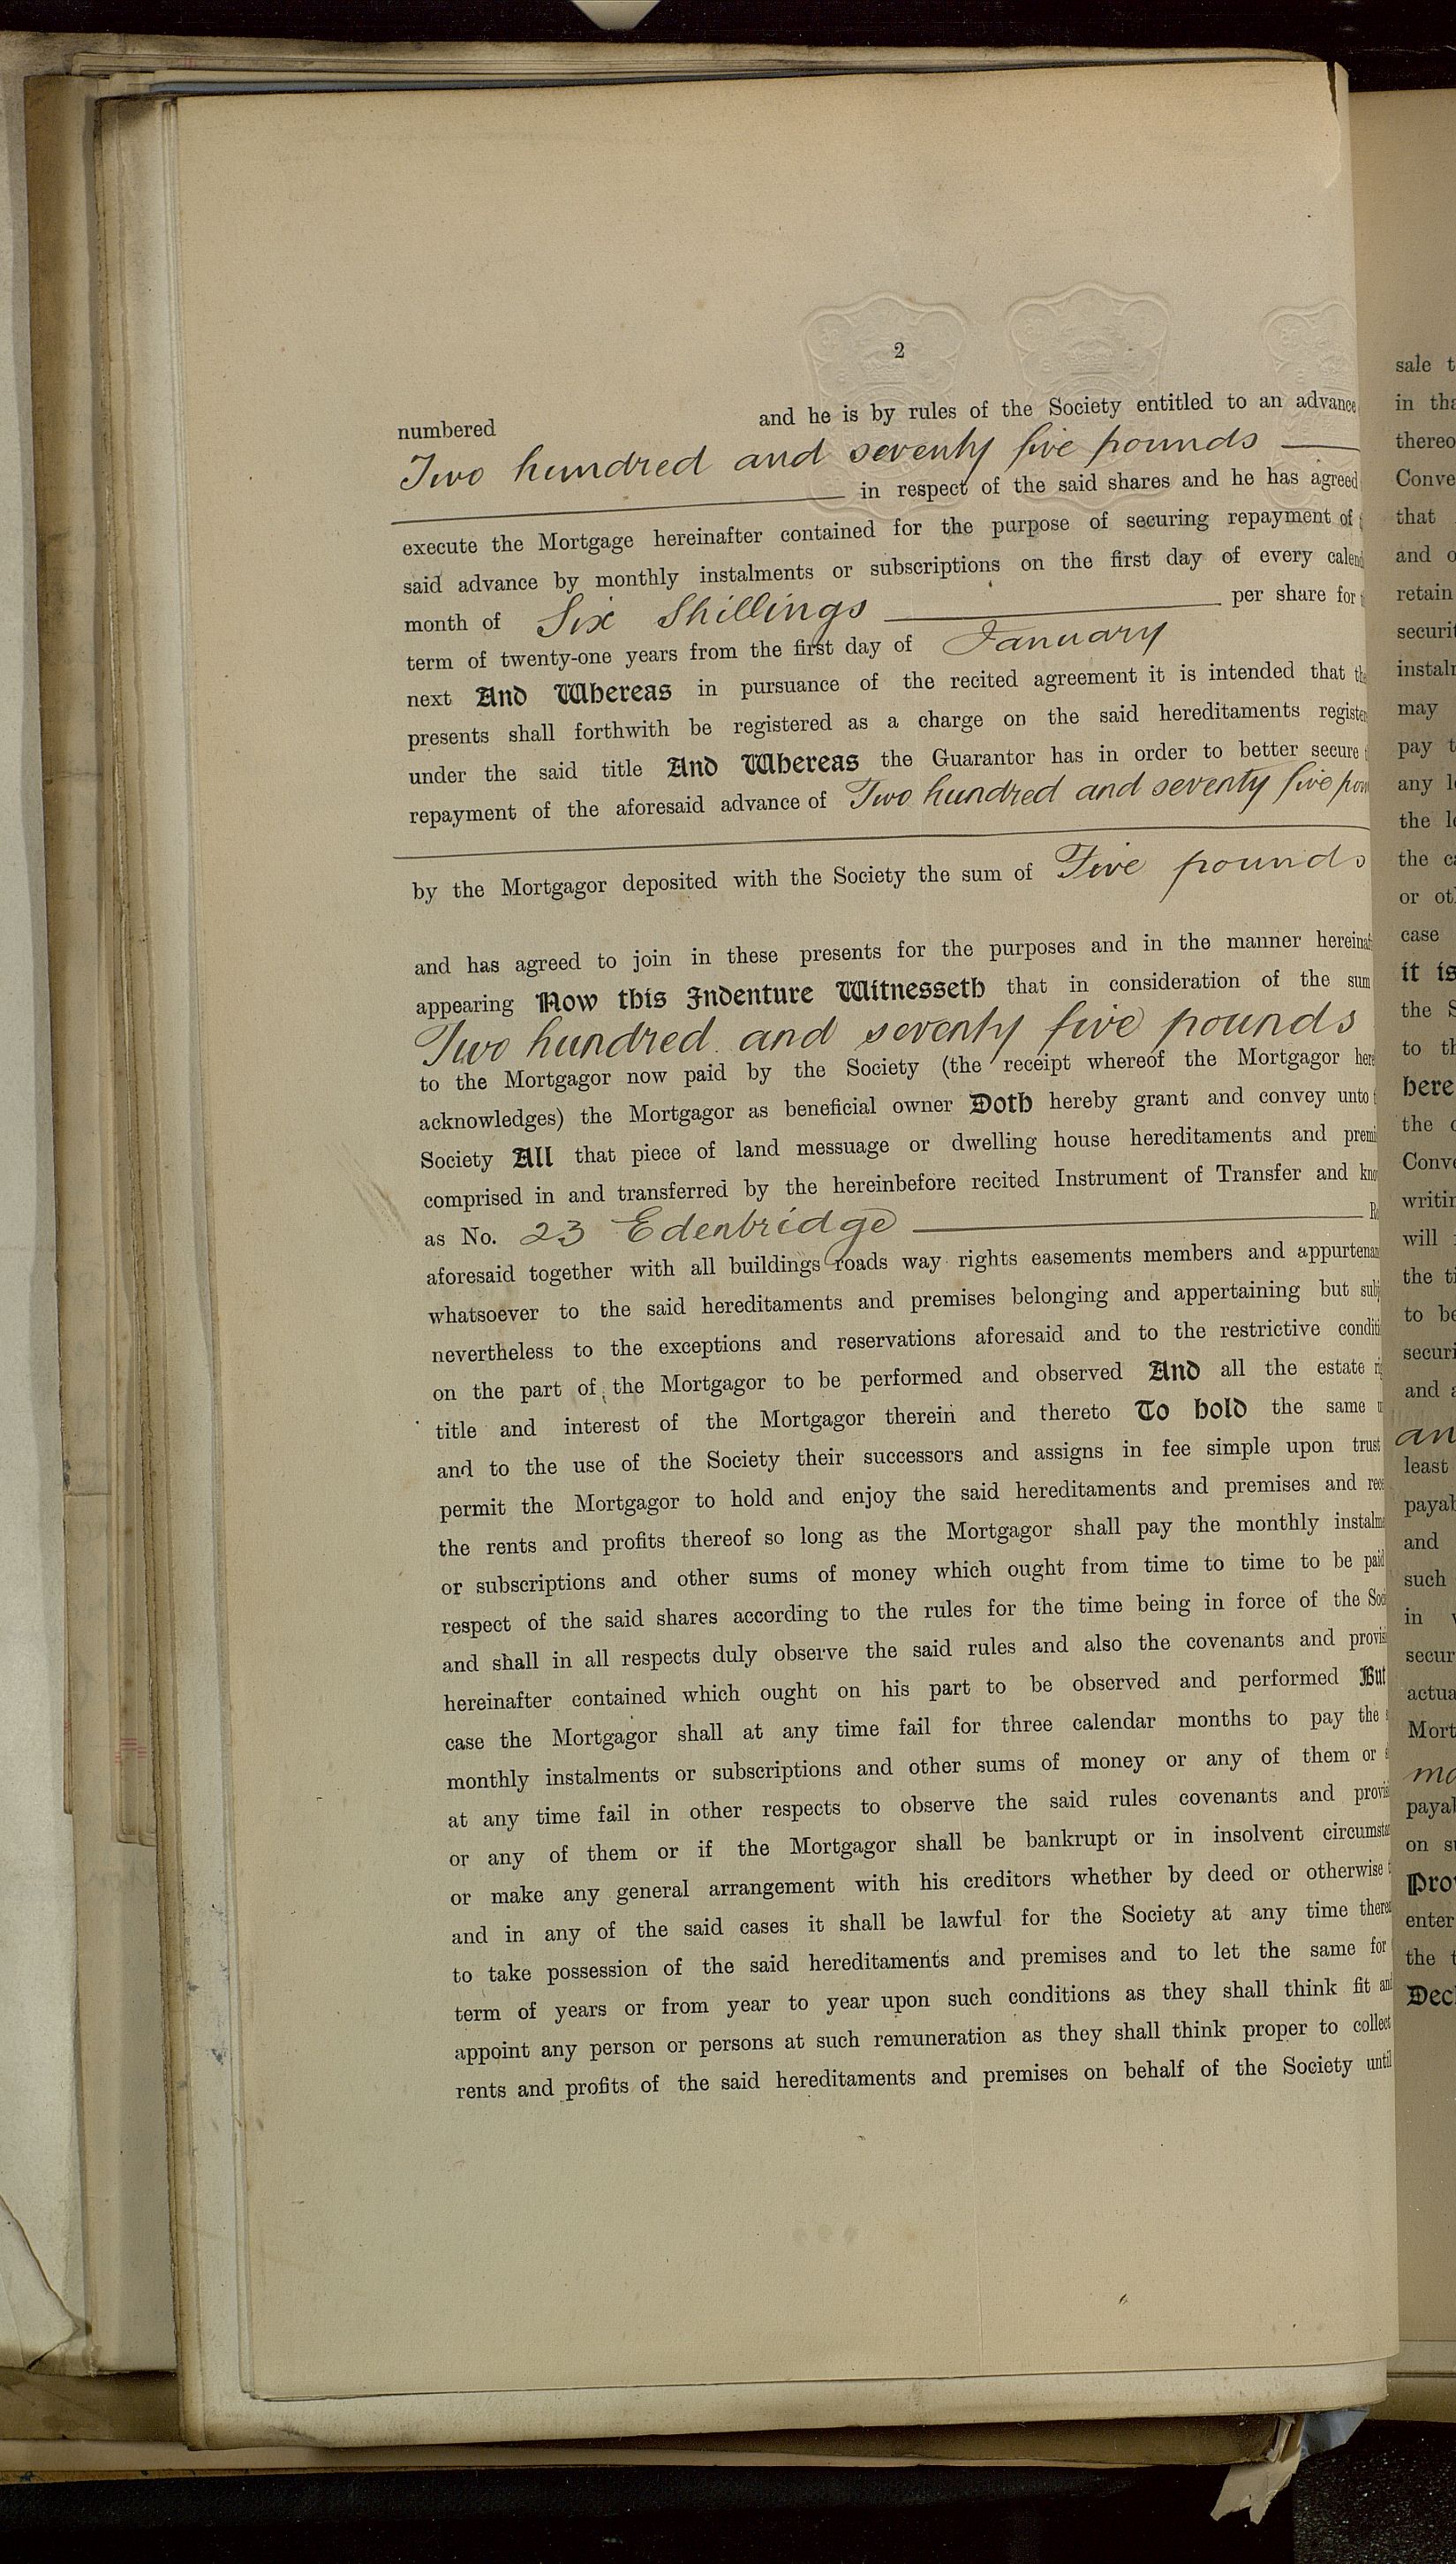 2
numbered and he is by rules of the Society entitled to an advance
Two hundred and seventy five pounds
in respect of the said shares and he has agreed
execute the Mortgage hereinafter contained for the purpose of securing repayment of
said advance by monthly instalments or subscriptions on the first day of every calend
month of Six Shillings per share for
term of twenty-one years from the first day of January
next And Whereas in pursuance of the recited agreement it is intended that the
presents shall forthwith be registered as a charge on the said hereditaments register
under the said title And Whereas the Guarantor has in order to better secure
repayment of the aforesaid advance of Two hundred and seventy five poun
by the Mortgagor deposited with the Society the sum of Five pounds
and has agreed to join in these presents for the purposes and in the manner hereinaf
appearing Now this Indenture Witnesseth that in consideration of the sum
Two hundred and seventy five pounds
to the Mortgagor now paid by the Society (the receipt whereof the Mortgagor here
acknowledges) the Mortgagor as beneficial owner Doth hereby grant and convey unto
Society All that piece of land messuage or dwelling house hereditaments and premi
comprised in and transferred by the hereinbefore recited Instrument of Transfer and kno
as No. 23 Edenbridge
aforesaid together with all buildings roads way rights easements members and appurtenan
whatsoever to the said hereditaments and premises belonging and appertaining but subj
nevertheless to the exceptions and reservations aforesaid and to the restrictive conditi
on the part of the Mortgagor to be performed and observed And all the estate ri
title and interest of the Mortgagor therein and thereto To hold the same
and to the use of the Society their successors and assigns in fee simple upon trust
permit the Mortgagor to hold and enjoy the said hereditaments and premises and rec
the rents and profits thereof so long as the Mortgagor shall pay the monthly instalme
or subscriptions and other sums of money which ought from time to time to be paid
respect of the said shares according to the rules for the time being in force of the Soci
and shall in all respects duly observe the said rules and also the covenants and provis
hereinafter contained which ought on his part to be observed and performed But
case the Mortgagor shall at any time fail for three calendar months to pay the
monthly instalments or subscriptions and other sums of money or any of them or
at any time fail in other respects to observe the said rules covenants and provis
or any of them or if the Mortgagor shall be bankrupt or in insolvent circumstan
or make any general arrangement with his creditors whether by deed or otherwise
and in any of the said cases it shall be lawful for the Society at any time therea
to take possession of the said hereditaments and premises and to let the same for
term of years or from year to year upon such conditions as they shall think fit and
appoint any person or persons at such remuneration as they shall think proper to collect
rents and profits of the said hereditaments and premises on behalf of the Society until
sale t
in tha
thereo
Conve
that
and o
retain
securit
instaln
may
pay t
any l
the l
the ca
or ot
case
it is
the S
to th
here
the c
Conve
writin
will
the ti
to be
securi
and a
an
least
payab
and
such
in
secur
actua
Mort
mo
payal
on s
Prov
enter
the t
Dec